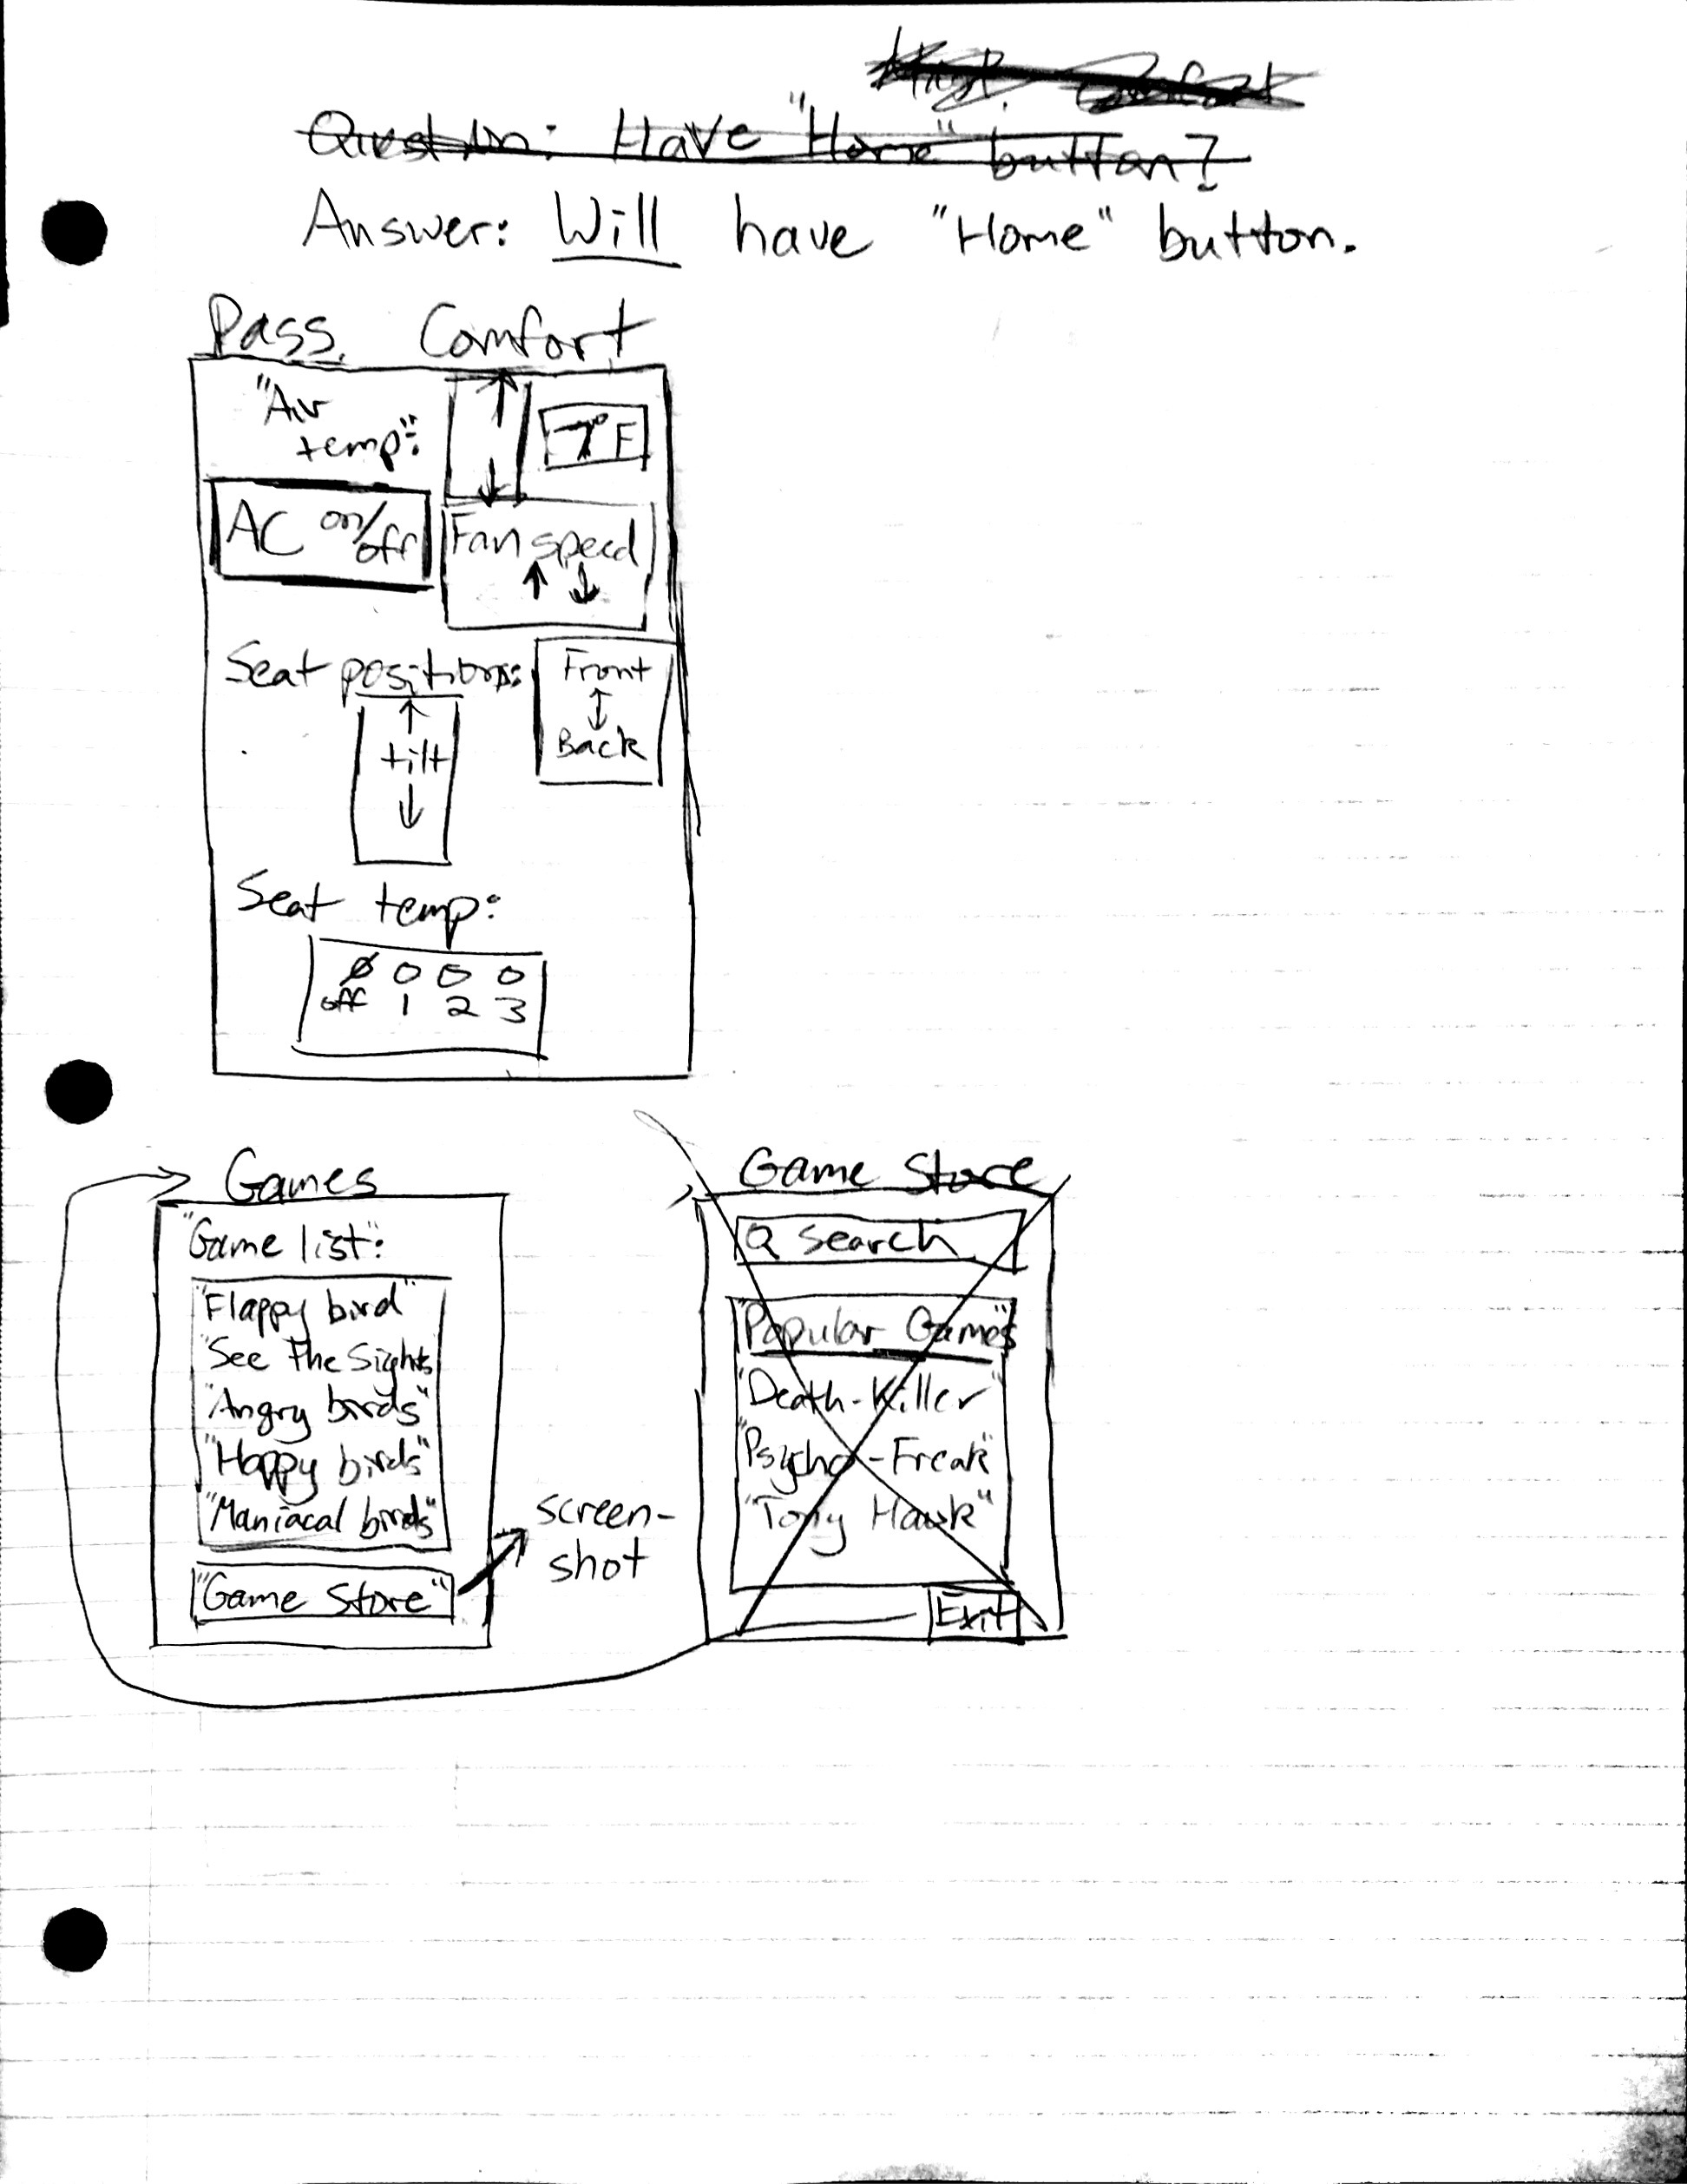 Question: Have "Home" button?
Answer: Will have "Home" button.
Pass. Comfort
"Air
temp":
T°F
AC on/off
Fan speed
↑ ↓
Seat positions:
Front
↕
Back
↑
tilt
↓
Seat temp:
0 0 0 0
off 1 2 3
Games
"Game list":
"Flappy bird"
"See The Sights
"Angry birds"
"Happy birds"
"Maniacal birds"
"Game Store"
screen-
shot
Game Store
Q Search
"Popular Games"
"Death-Killer"
"Psycho-Freak"
"Tony Hawk"
Exit